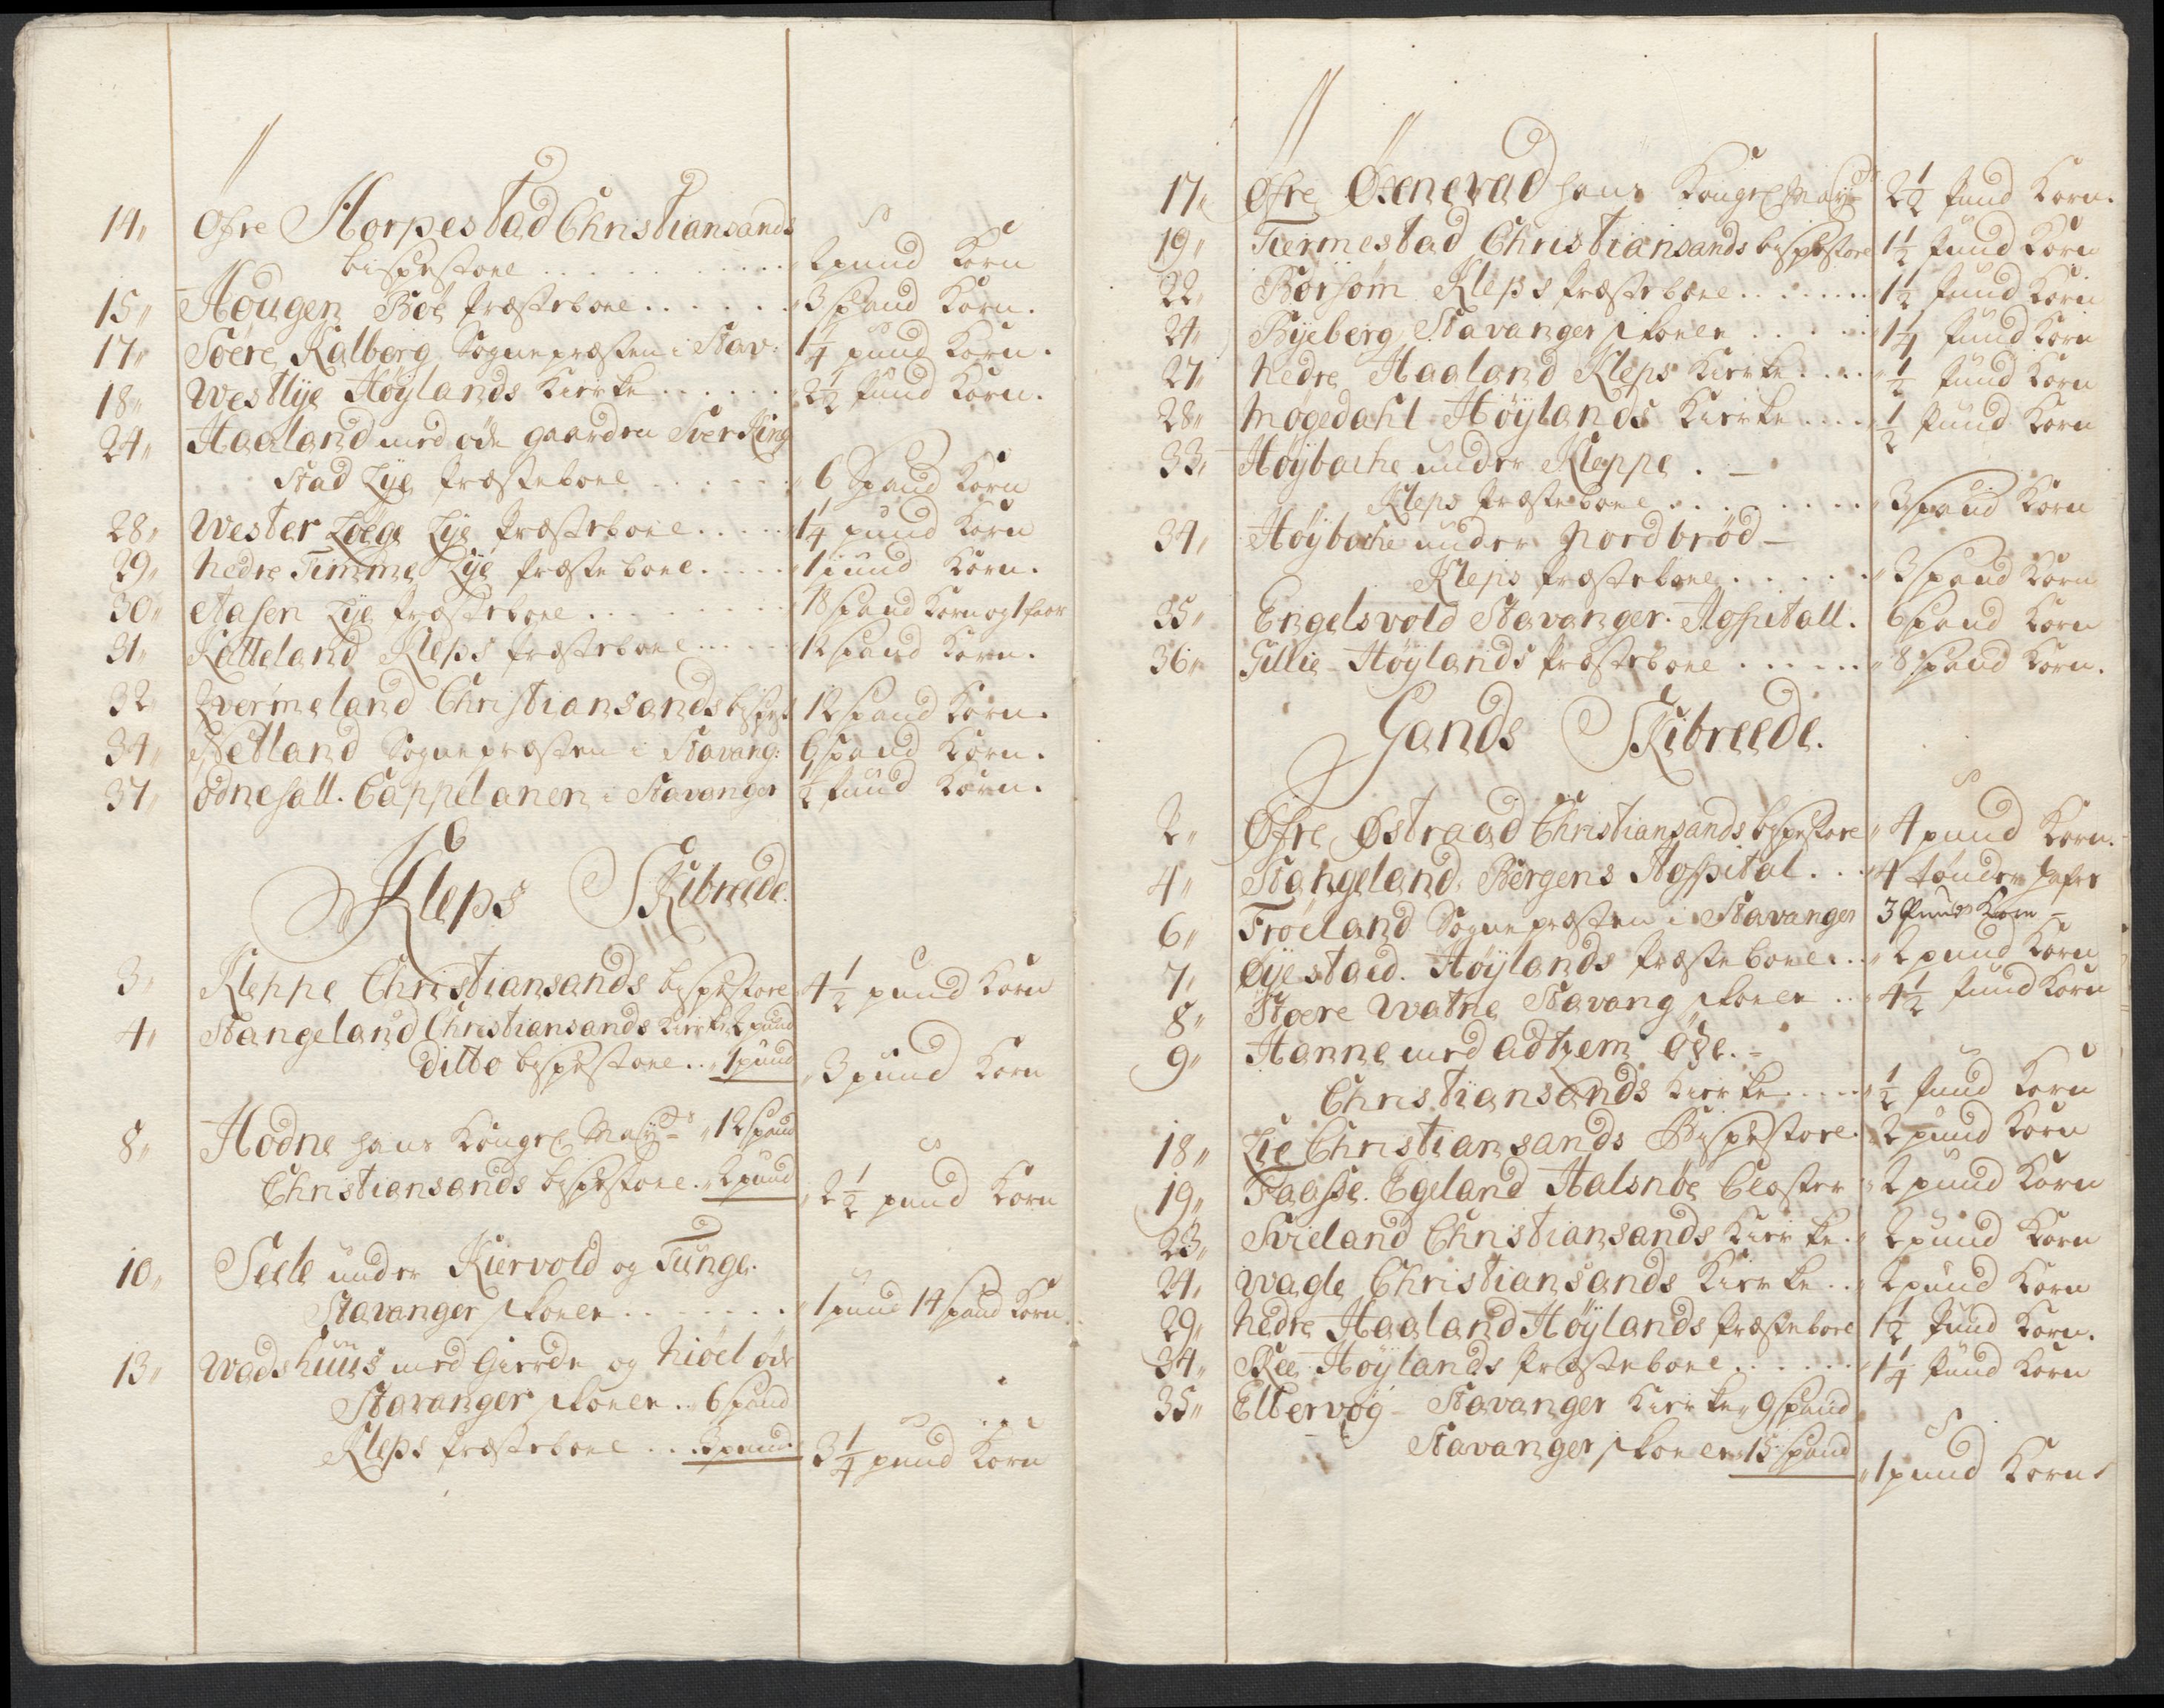 14. Øfre Horpestad Christiansands
bispestoel . . . . . . 2 pund Korn
15. Hougen Böe Præsteboel . . . . . . 3 spand Korn.
17. Söere Kalberg Sognepræsten i Stav: 1¼ pund Korn.
18. Westlÿe Höÿlands Kierke . . . . . . 2½ pund Korn.
24. Haaland med øde gaarden Sverking
Stad Lÿe Præsteboel . . . . . . 6 Spand Korn
28. Wester Löege Lÿe Præsteboel . . . . . 1¼ pund Korn
29. Nedre Timme Lÿe Præsteboel . . . . . 1 pund Korn.
30. Aasen Lÿe Præsteboel . . . . . . 18 spand Korn og 1 faar
31. Katteland Kleps Præsteboel . . . . . 12 spand Korn.
32 Qvermeland Christiansands bispest 12 spand Korn.
34. Netland Sognepræsten i Stavang: 6 spand Korn.
37. Odnefall. Cappelanen i Stavanger ½ pund Korn.
Kleps Skibreede.
3. Kleppe Christiansands bispestoel 4½ pund Korn
4. Stangeland Christiansands Kierke 2 pund
Ditto bispestoel . . 1 pund 3 pund Korn
8. Hodne hans Kongel Maÿts 12 spand
Christiansands bispestoel . 2 pund 2½ pund Korn
10. Seele under Kiervold og Tunge.
Stavanger skolen . . . . . . 1 pund 14 spand Korn.
13. Wadshuus med Gierde og Niöel øde
Stavanger skolen . . 6 spand
Kleps Præsteboel . . . 3 pund. 3¼ pund Korn
17. Øfre Øxenevad hans Kongel Maÿts 2½ pund Korn.
19. Tiermestad Christiansands bispestoel 1½ pund Korn
22. Borsom Kleps Præsteboel . . . . . . 1½ pund Korn
24. Bÿeberg Stavanger skolen . . . . . 1¼ pund Korn
27. Nedre Haaland Kleps Kierke . . . . ½ pund Korn
28. Møgedahl Höÿlands Kierke . . . . ½ pund Korn
33. Höÿbache under Kleppe . —
Kleps Præsteboel . . . . . . 3 spand Korn
34. Höÿbache under Nordbröd —
Kleps Præsteboel . . . . . . 3 spand Korn
35. Engelsvold Stavanger. Hospitall. 6 spand Korn
36. Gillie Höÿlands Præsteboel . . . . . . 8 spand Korn.
Gands Skibreede.
2. Øfre Østraad Christiansands bispestoel 4 pund Korn.
4. Stangeland, Bergens Hospital . . . 4 tönder hafre
6. Fröeland Sognepræsten i Stavanger 3 Pund Korn –
7. Øÿestad. Höÿlands Præsteboel . . . 2 pund Korn
8. Stoere Watne Stavang skolen . . 4½ pund Korn
9. Hanne med Adtzem Øde. –
Christiansands Kierke . . . . ½ pund Korn
18. Lie Christiansands Bispestoel. 2 pund Korn
19. Faasse. Egeland Halsnöe Closter 2 pund Korn
23. Svieland Christiansands Kierke. 2 pund Korn
24. Wagle Christiansands Kierke . . 2 pund Korn
29. Nedre Haaland Höÿlands Præsteboel 1½ pund Korn.
34. Skee Höÿlands Præsteboel . . . . . . 1¼ pund Korn
35. Eltervog – Stavanger Kierke 9 spand
Stavanger skolen 15 spand 1 pund Korn